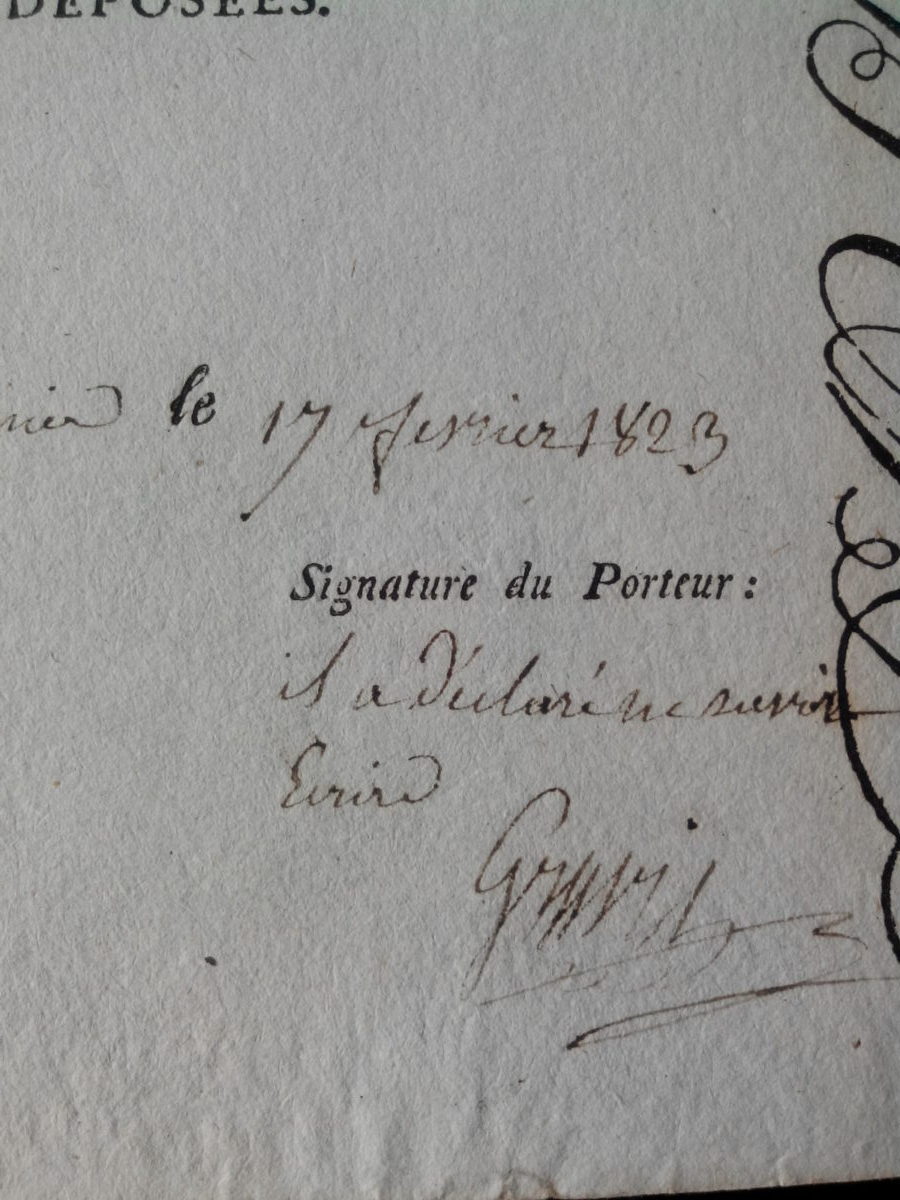 DÉPOSÉES.
le 17 fevrier 1823
Signature du Porteur :
il a déclaré ne savoir
Ecrire